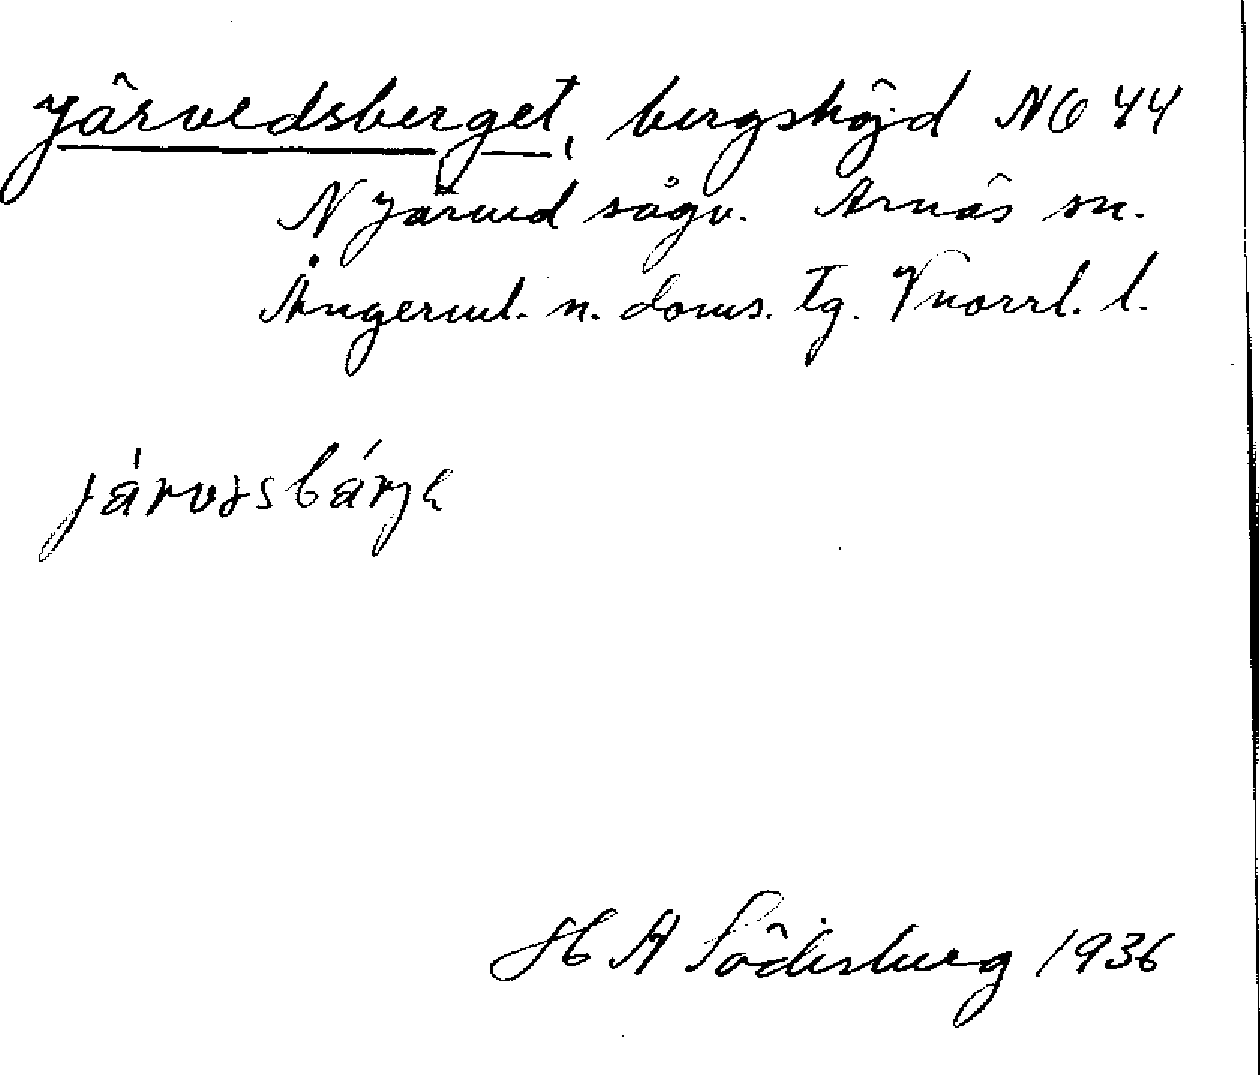 Järvedsberget, bergshöjd NO 44
N Järved sågv. Arnäs sn.
Ångerml. n. doms. Tg. Vnorrl. l.
H A Söderberg 1936